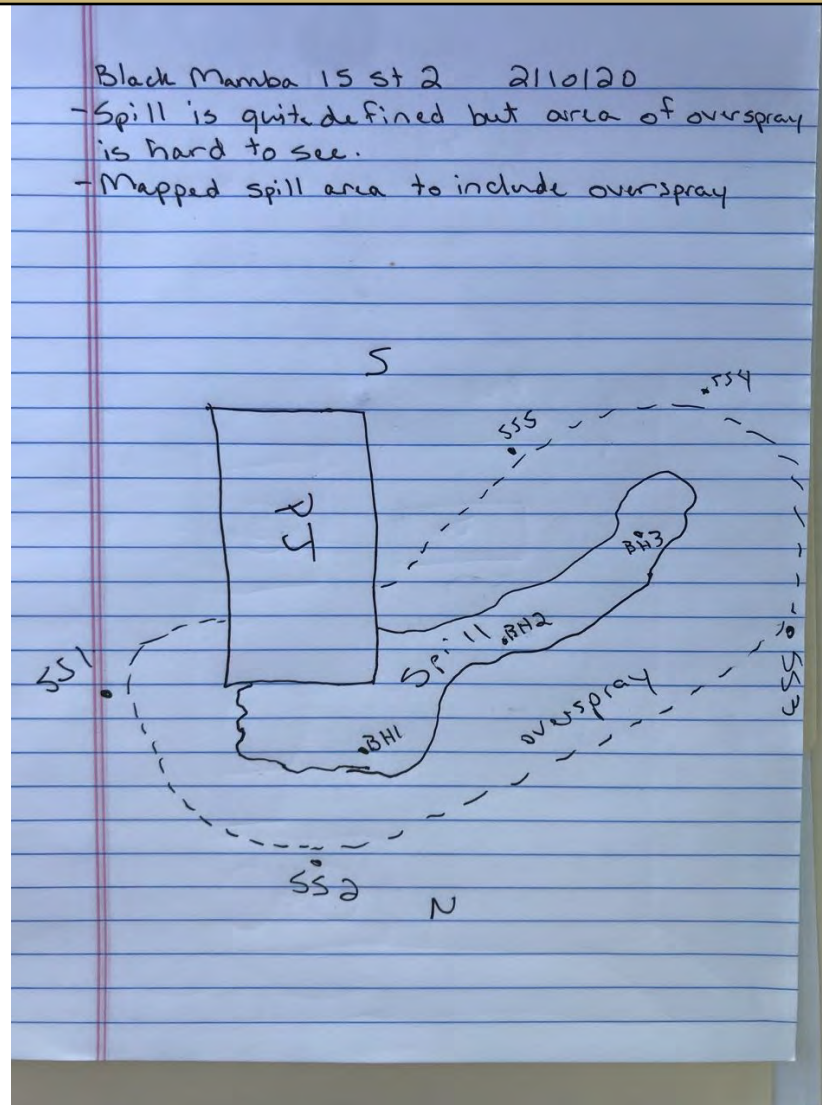 Black Mamba 15 st 2 2/10/20
- Spill is quite defined but area of overspray
is hard to see.
- Mapped spill area to include overspray
S
SS4
SS5
PJ
BH3
Spill
BH2
SS1
SS3
overspray
BH1
SS2
N